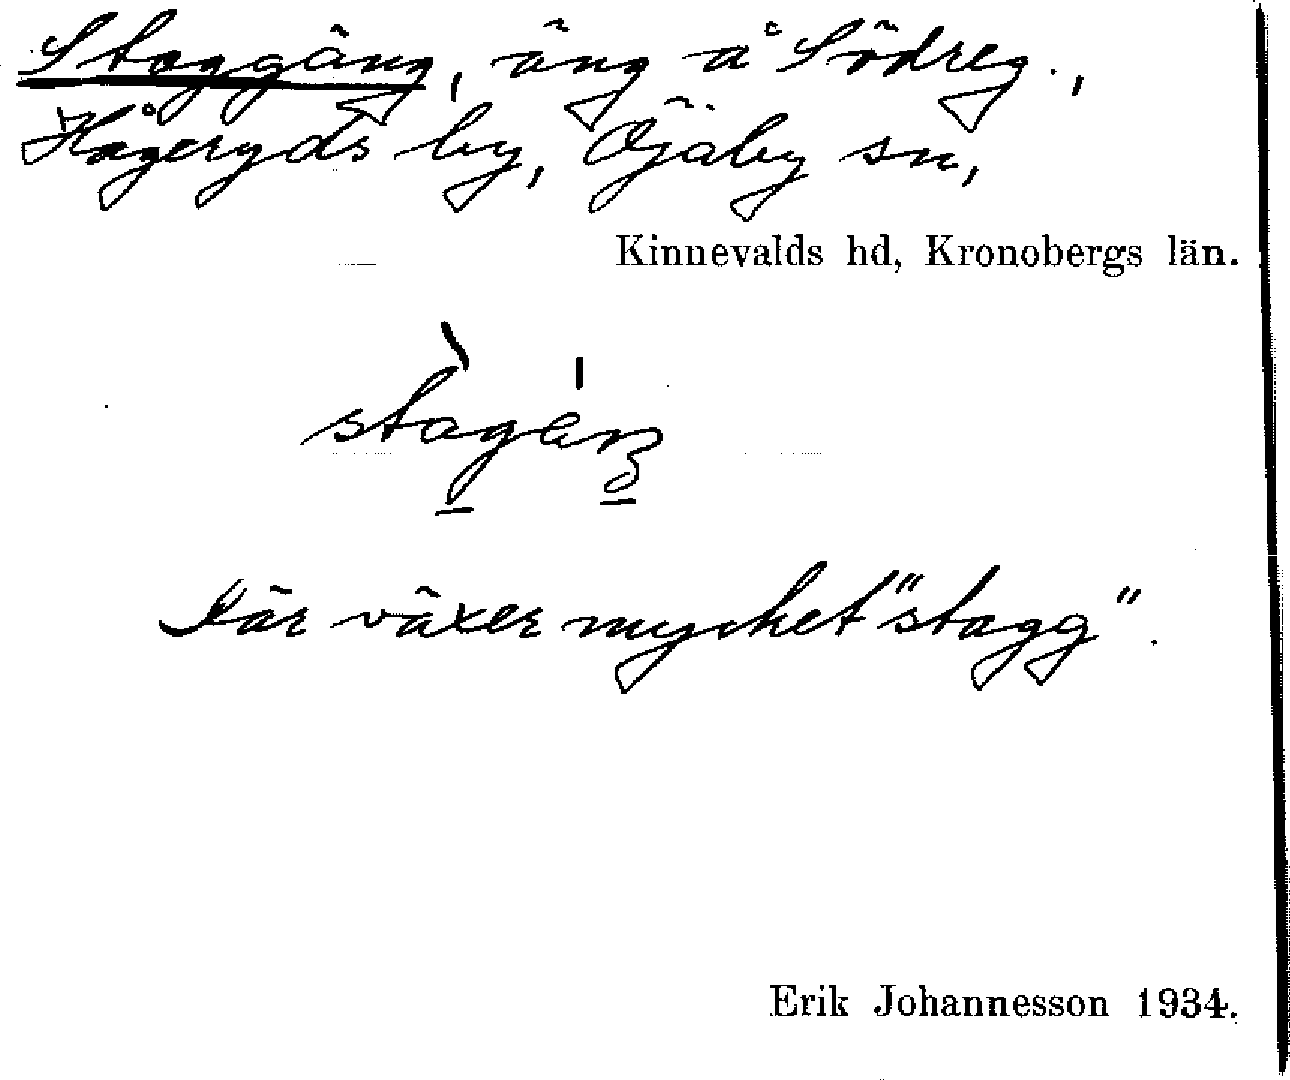 Staggäng, äng å Södreg.,
Hågeryds by, Öjaby sn,
Kinnevalds hd, Kronobergs län.
Där växer mycket "stagg".
Erik Johannesson 1934.